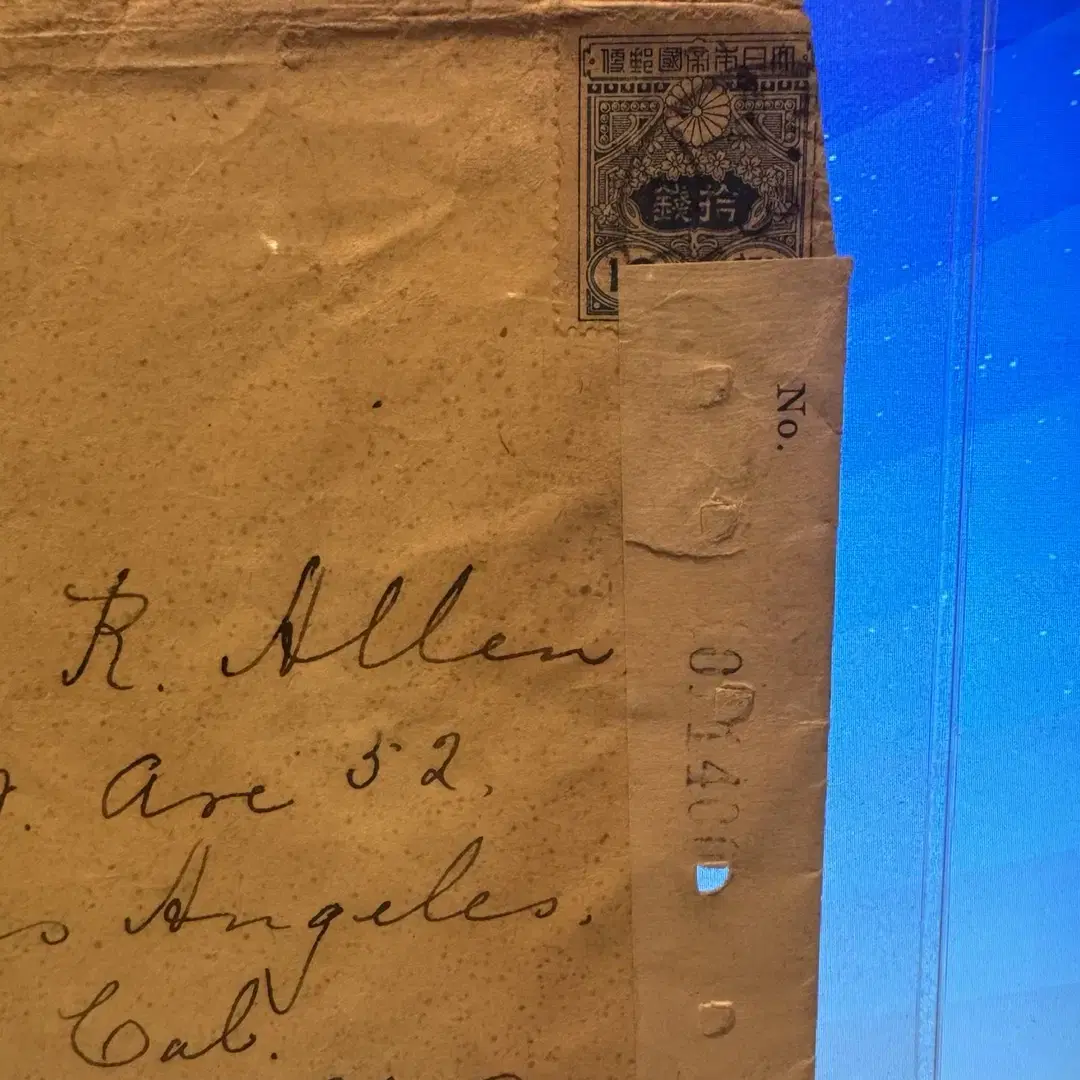 大日本帝國郵便
拾錢
1
No.
R. Allen
Ave 52.
Angeles.
Cal.